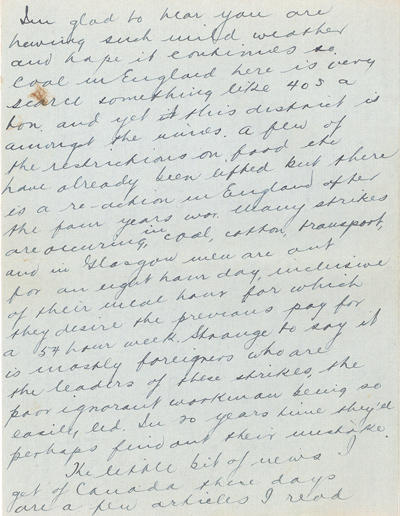 I'm glad to hear you are
having such mild weather
and hope it continues so.
Coal in England here is very
scarce something like 40s a
ton, and yet this district is
amongst the mines. A few of
the restrictions on food etc
have already been lifted but there
is a re-action in England after
the four years war. Many strikes
are occuring, in coal, cotton, transport,
and in Glasgow men are out
for an eight hour day, inclusive
of their meal hour for which
they desire the previous pay for
a 54 hour week. Strange to say it
is mostly foreigners who are
the leaders of these strikes, the
poor ignorant workman being so
easily led. In 20 years time they'd
perhaps find out their mistake.
The little bit of news I
get of Canada these days
are a few articles I read